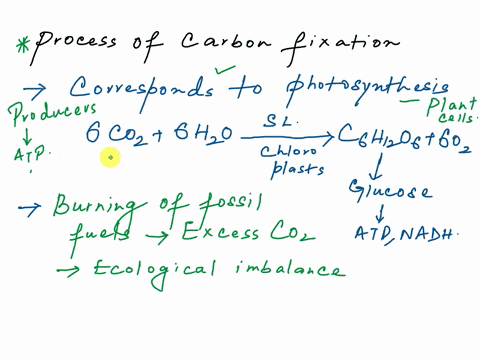 * Process of Carbon fixation
→ Corresponds to photosynthesis
Producers
↓
ATP
— Plant cells.
6CO2 + 6H2O —S.L.→ C6H12O6 + 6O2
Chloroplasts
↓
Glucose
↓
ATP, NADH.
→ Burning of fossil
fuels → Excess CO2
→ Ecological imbalance